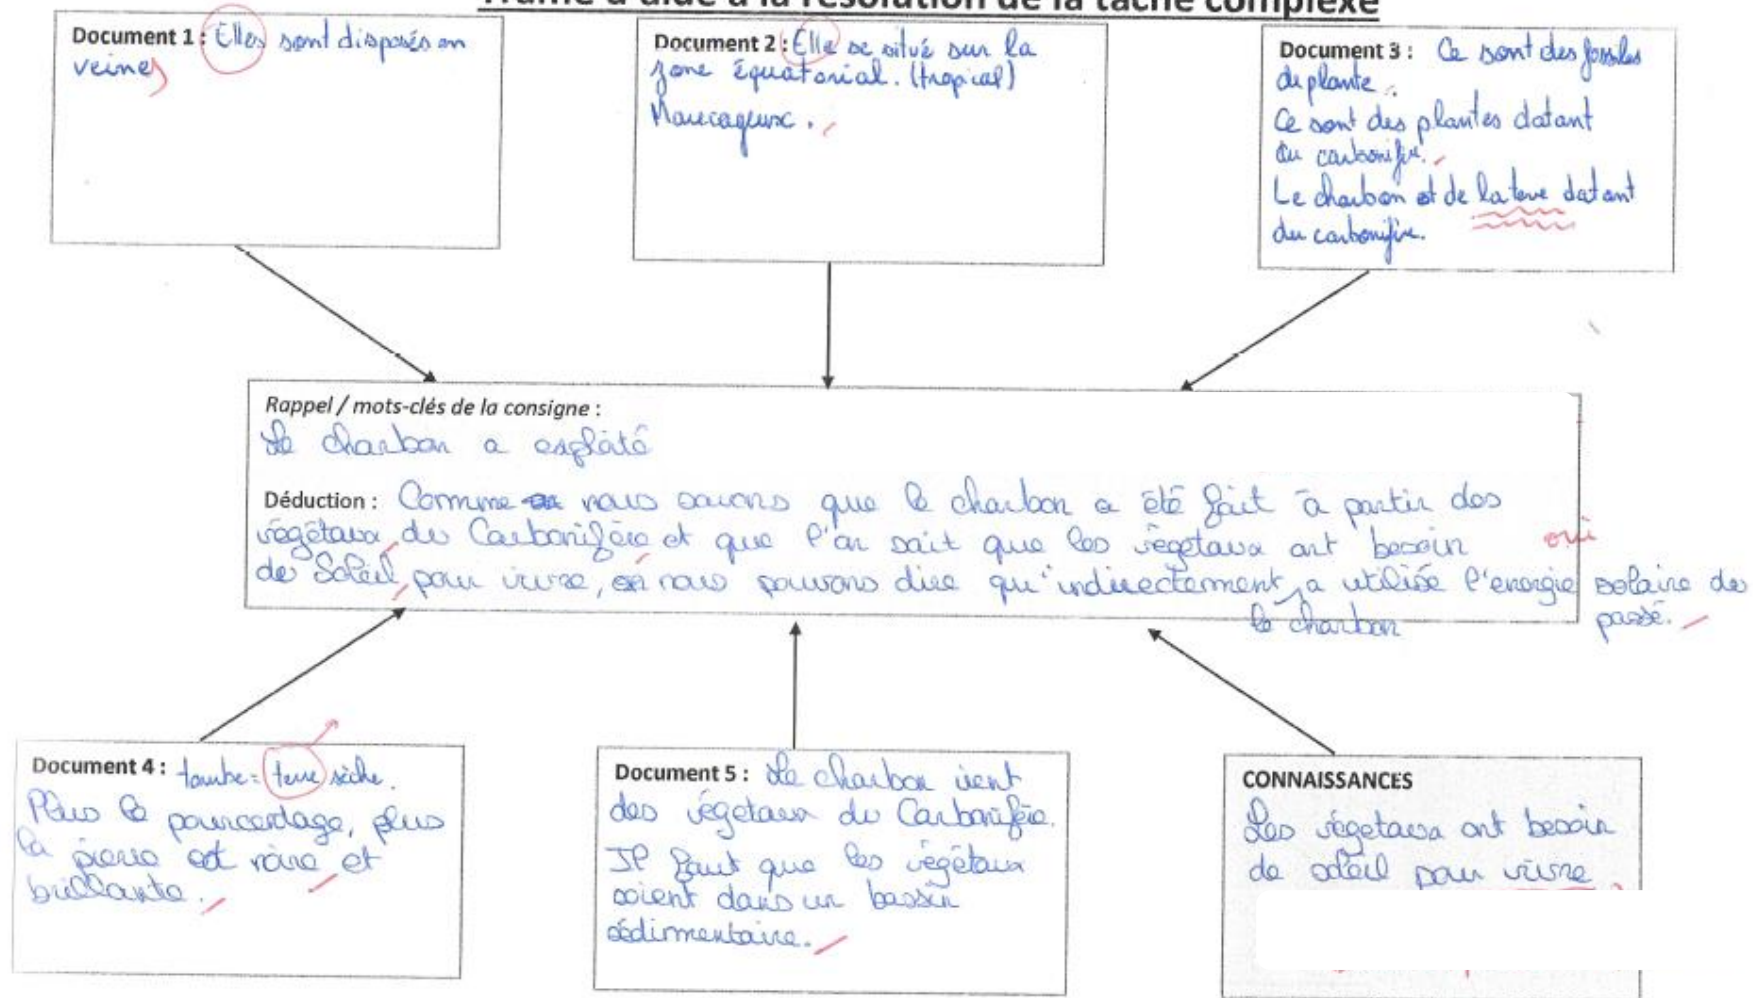 Trame d'aide à la résolution de la tâche complexe
Document 1 : Elles sont disposés en
veines
Document 2 : Elle se situé sur la
zone équatorial. (tropical)
Marecageux.
Document 3 : Ce sont des fossiles
de plante.
Ce sont des plantes datant
du carbonifère.
Le charbon et de la terre datant
du carbonifère.
Rappel / mots-clés de la consigne :
Le charbon a exploité
Déduction : Comme nous savons que le charbon a été fait à partir des
végétaux du Carbonifère et que l'on sait que les végétaux ont besoin
oui
de Soleil, pour vivre, nous pouvons dire qu'indirectement, a utilisé l'energie solaire du
le charbon
passé.
Document 4 : tourbe = terre sèche.
Plus le pourcentage, plus
la pierre est noire et
brillante.
Document 5 : Le charbon vient
des végetaux du Carbonifère.
Il faut que les végétaux
soient dans un bassin
sédimentaire.
CONNAISSANCES
Les végetaux ont besoin
de soleil pour vivre